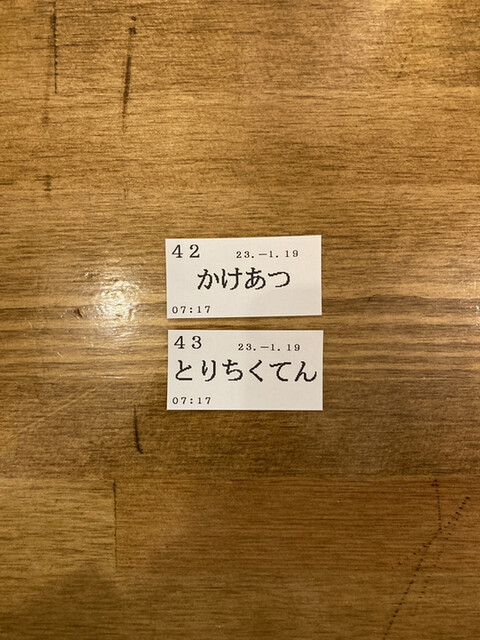 42 23.-1.19
かけあつ
07:17
43 23.-1.19
とりちくてん
07:17